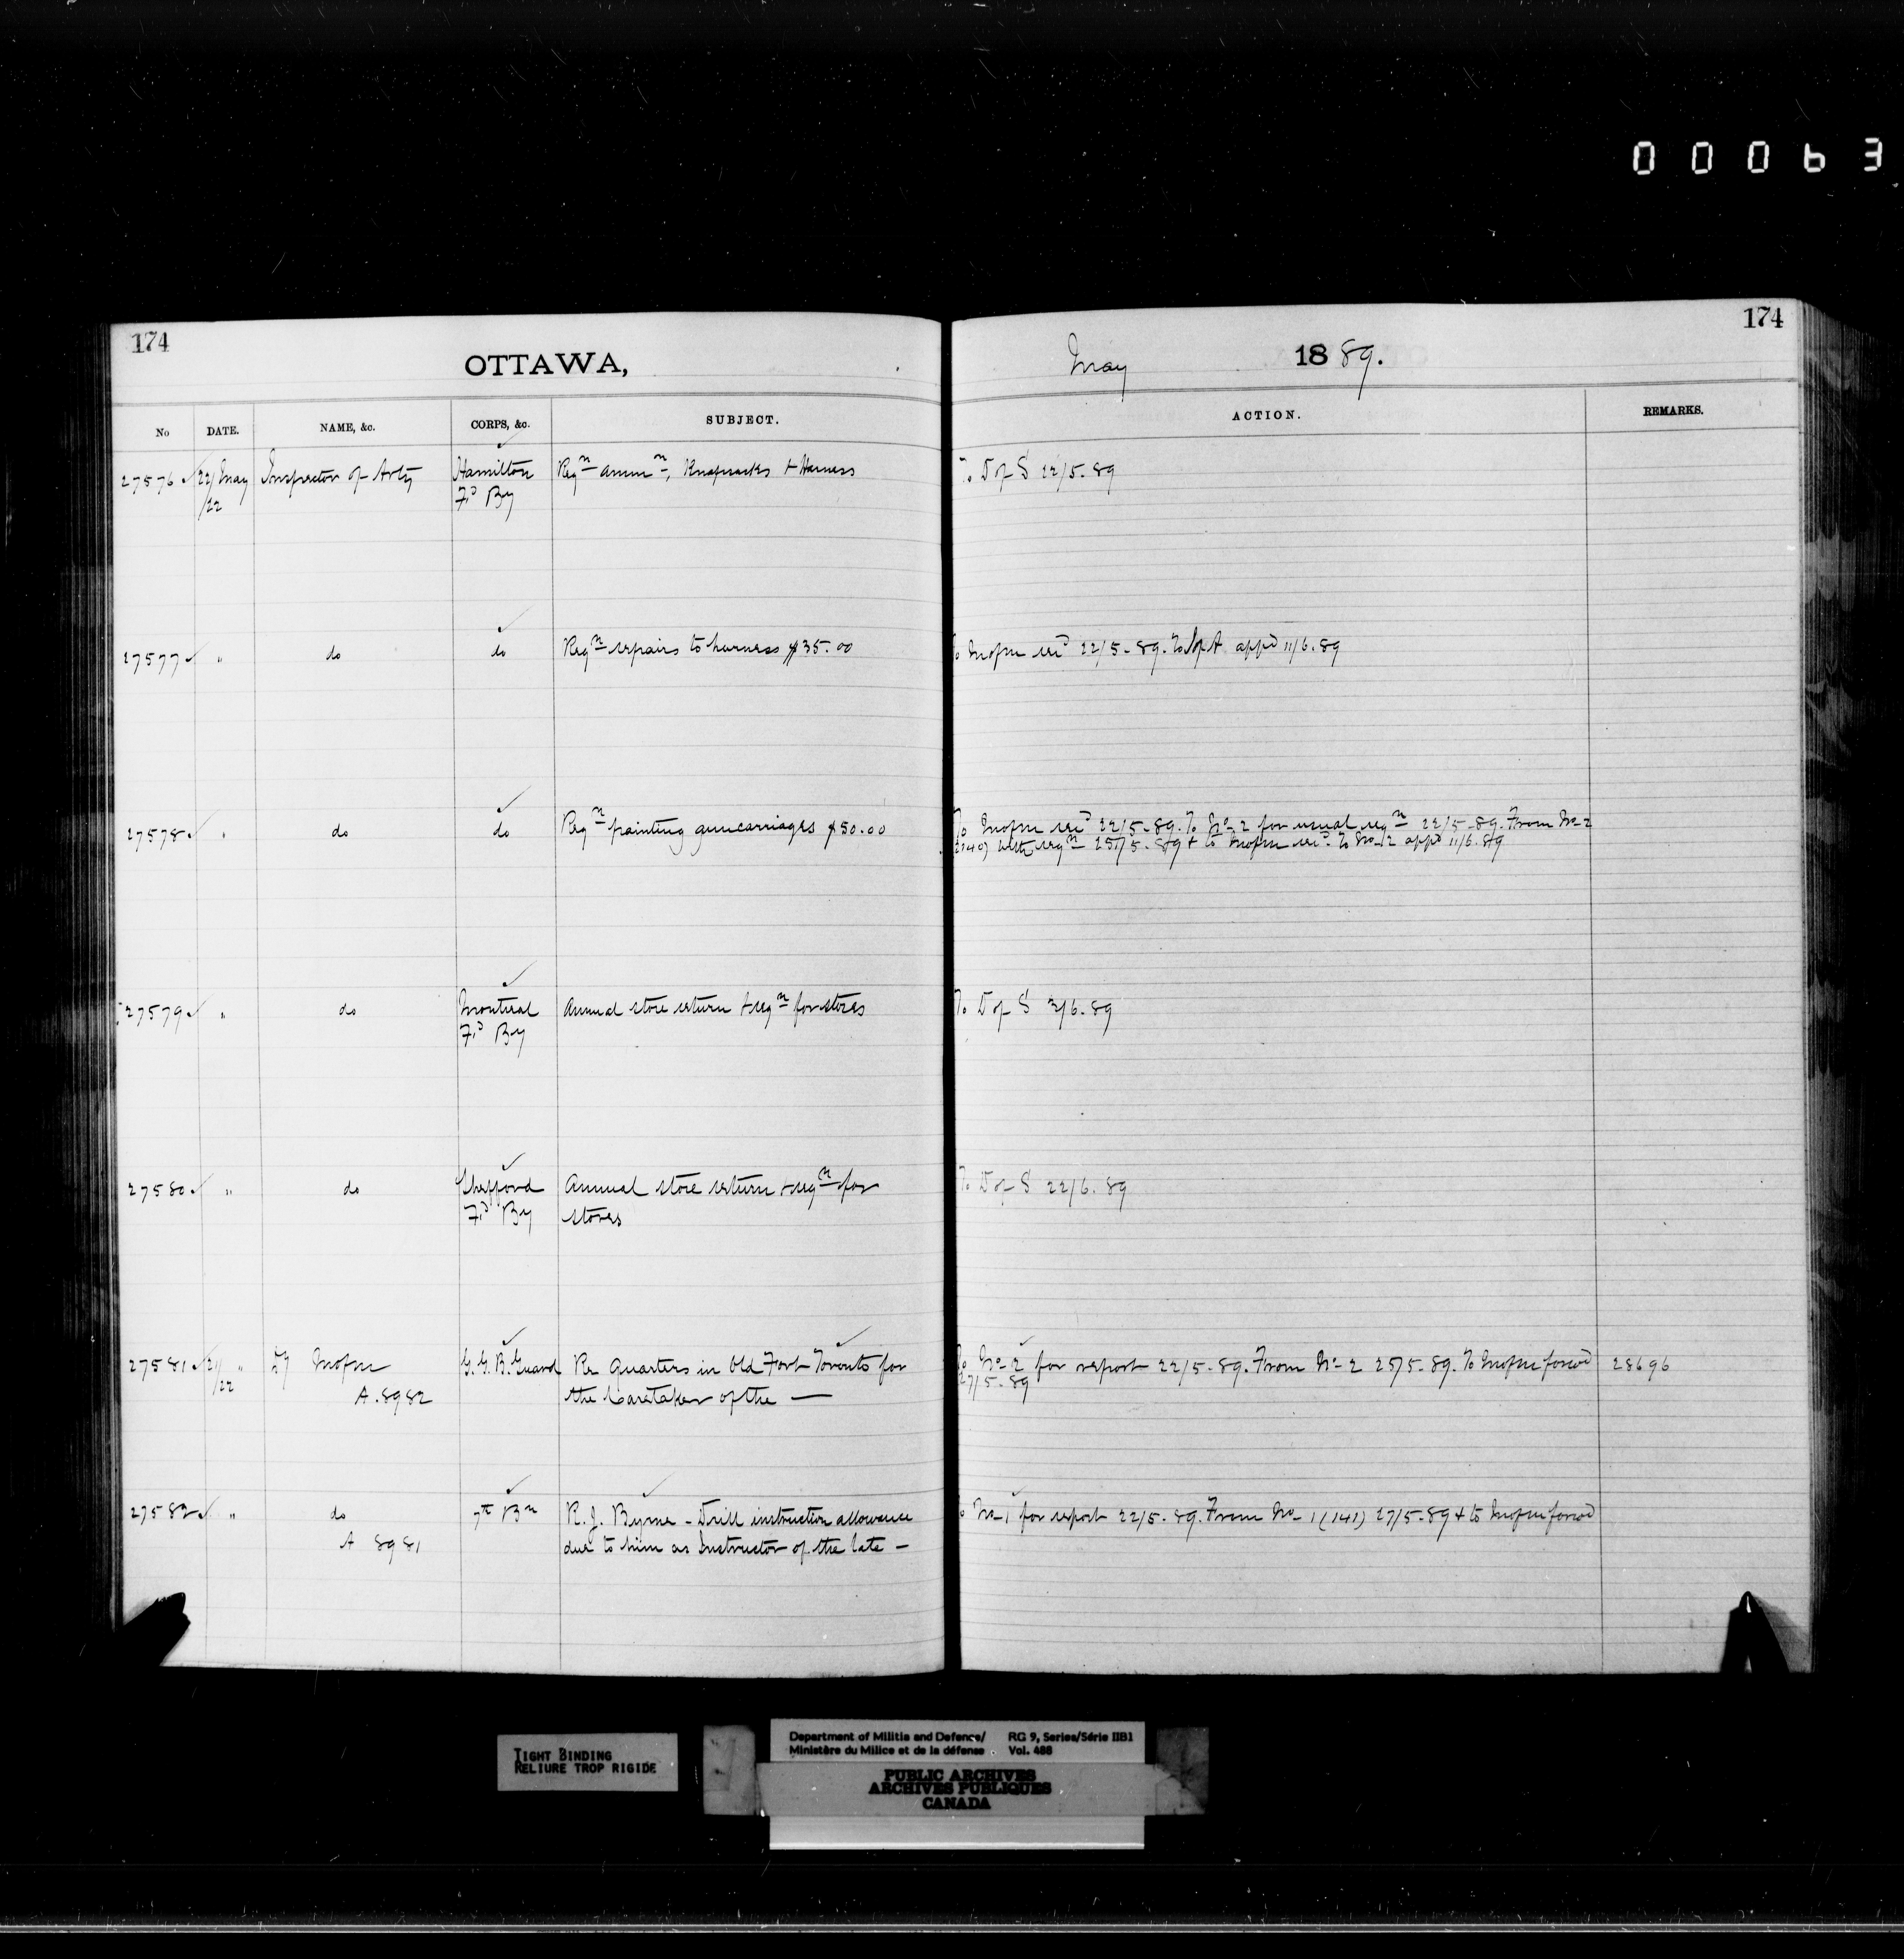 00063
174
OTTAWA,
No DATE. NAME, &c. CORPS, &c. SUBJECT.
27576 22/May Inspector of Arty Hamilton Reqn ammn, Knapsacks + Harness
/22 Fd By
27577 " do do Reqn repairs to harness $35.00
27578 " do do Reqn painting guncarriages $50.00
27579 " do Montreal Annual store return + reqn for stores
Fd By
27580 " do Shefford Annual store return + reqn for
Fd By stores
27581 21/ " G.G.B. Guard Re Quarters in Old Fort Toronto for
/22 A. 8982 the Caretaker of the —
27582 " do 7th Bn R. J. Byrne - Drill instruction allowance
A 8981 due to him as Instructor of the late —
174
May 1889.
ACTION. REMARKS.
To D of S 22/5-89
recd 22/5-89. appd 11/6.89
To recd 22/5-89. To No 2 for usual reqn 22/5-89. From No 2
with reqn 25/5-89 + to recd. To No 2 appd 11/6.89
To D of S 3/6.89
To D of S 22/6.89
To No 2 for report 22/5-89. From No 2 25/5-89. To forwd 28696
27/5-89
No 1 for report 22/5-89. From No 1 (141) 27/5-89 + to forwd
TIGHT BINDING
RELIURE TROP RIGIDE
Department of Militia and Defence/ RG 9, Series/Série IIB1
Ministère du Milice et de la défense Vol. 488
PUBLIC ARCHIVES
ARCHIVES PUBLIQUES
CANADA